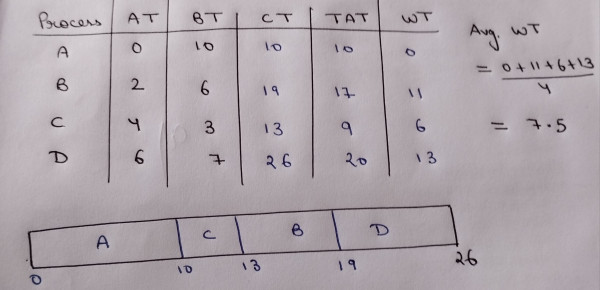 Process AT BT CT TAT WT
A 0 10 10 10 0
B 2 6 19 17 11
C 4 3 13 9 6
D 6 7 26 20 13
Avg. WT
= 0+11+6+13
4
= 7.5
A C B D
0 10 13 19 26